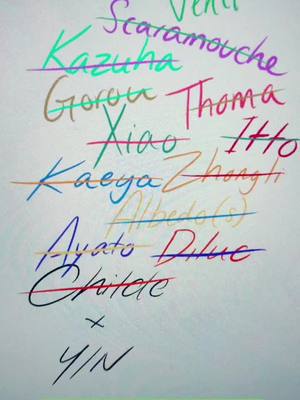 Venti
Scaramouche
Kazuha
Gorou Thoma
Xiao Itto
Kaeya Zhongli
Albedo(s)
Ayato Diluc
Childe
x
Y/N